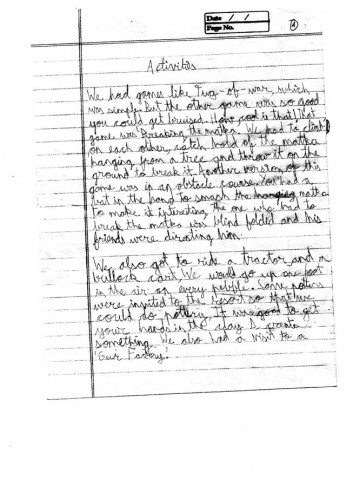 Date / /
Page No.
4
Activites
We had games like Tug-of-war, which
was simple. But the other game was so good
you could get bruised. How cool is that! That
game was Breaking the matka. We had to climb
on each other, catch hold of the matka
hanging from a tree and throw it on the
ground to break it. Another version of this
game was in an obstacle course. You had a
bat in the hand to smash the hanging matka
to make it interesting the one who had to
break the matka was blind folded and his
friends were directing him!
We also got to ride a tractor and a
bullock cart. We would go up one foot
in the air on every pebble. Some potters
were invited to the resort so that we
could do pottery. It was good to get
your hands in the clay & create
something. We also had a visit to a
'Gur Factory'.